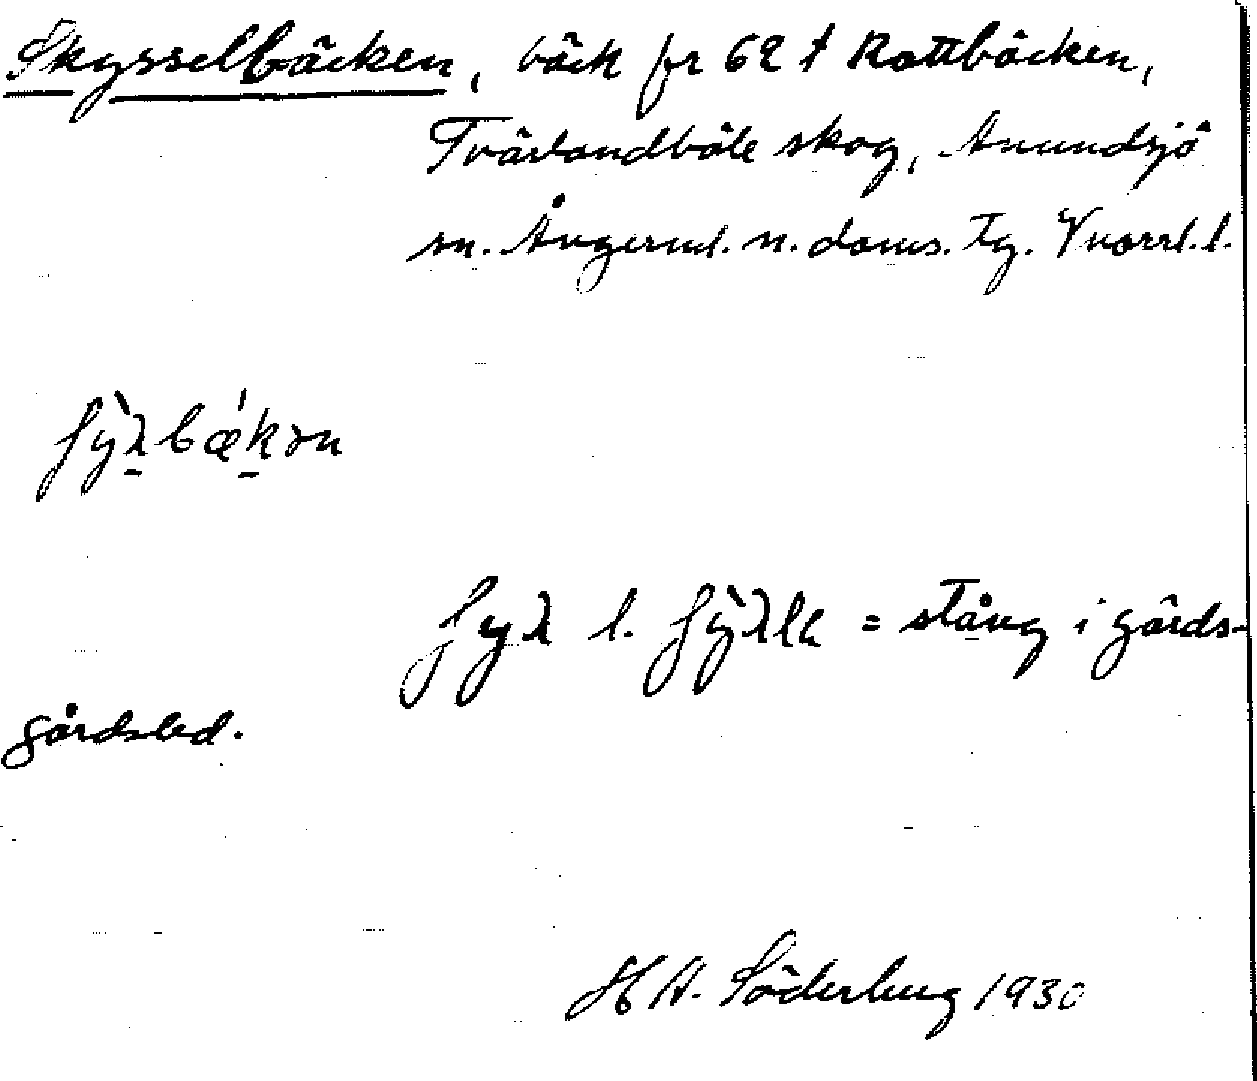 Skysselbäcken, bäck fr 62 t Rottbäcken,
Tvärlandböle skog, Anundsjö
sn. Ångerml. n. doms. Tg. V norrl. l.
ʃỳλbǽkən
ʃyλ l. ʃỳλlk = stång i gärds-
gårdsled.
H A. Söderberg 1930